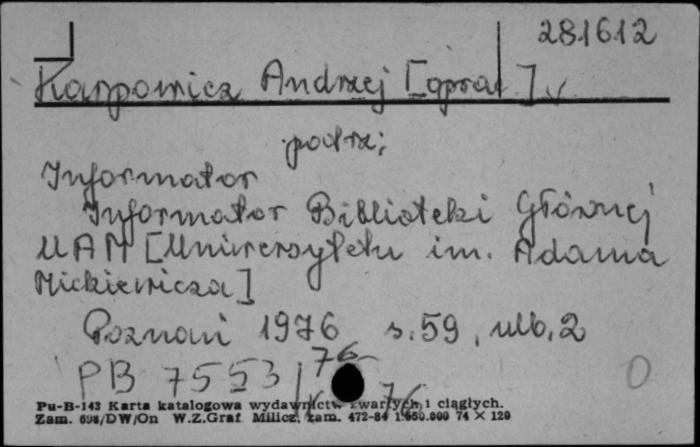 281612
Karpowicz Andrzej [oprac.]
patrz:
Informator
Informator Biblioteki Głównej
UAM [Uniwersytetu im. Adama
Mickiewicza]
Poznań 1976 s. 59, ulb. 2
PB 7553/76
0
Pu-B-143 Karta katalogowa wydawnictw zwartych i ciągłych.
Zam. 698/DW/On W.Z.Graf. Milicz, zam. 472-84 1.650.000 74 × 120